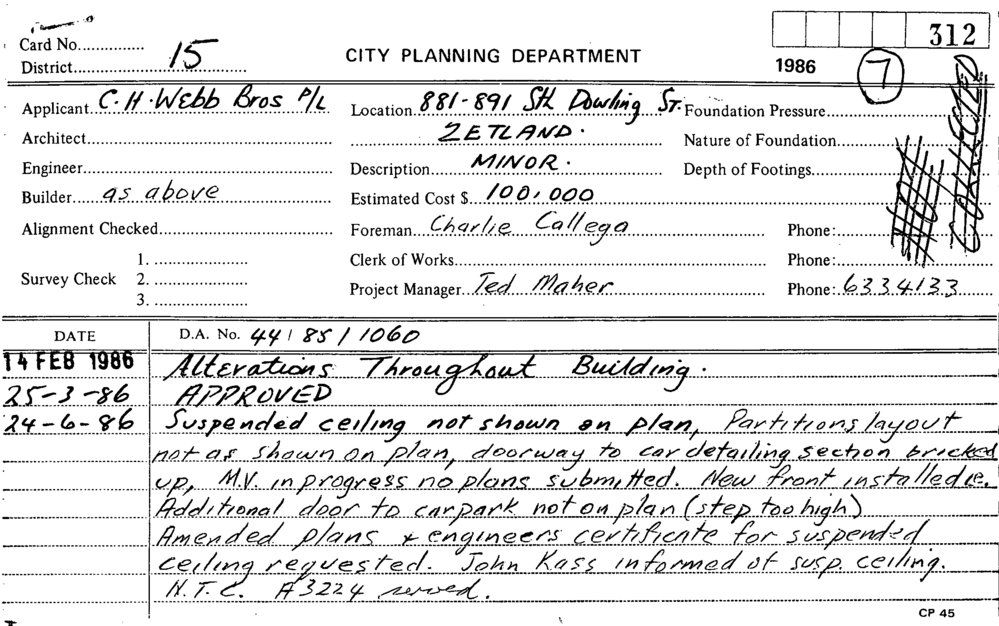 312
Card No.
District 15
CITY PLANNING DEPARTMENT
1986
7
Applicant C.H. Webb Bros P/L
Location 881-891 Sth Dowling St.
Foundation Pressure
Architect
ZETLAND.
Nature of Foundation
Engineer
Description MINOR.
Depth of Footings
Builder as above
Estimated Cost $ 100,000
Alignment Checked
Foreman Charlie Callega
Phone:
Survey Check 1.
Clerk of Works
Phone:
2.
Project Manager Ted Maher
Phone: 6334133
3.
DATE
D.A. No. 44/85/1060
14 FEB 1986 Alterations Throughout Building.
25-3-86 APPROVED
24-6-86 Suspended ceiling not shown on plan, Partitions layout
not as shown on plan, doorway to car detailing section bricked
up, M.V. in progress no plans submitted. New front installed i.e.
Additional door to carpark not on plan (step too high)
Amended plans & engineers certificate for suspended
ceiling requested. John Kass informed of susp. ceiling.
N.T.C. A3224 served.
CP 45